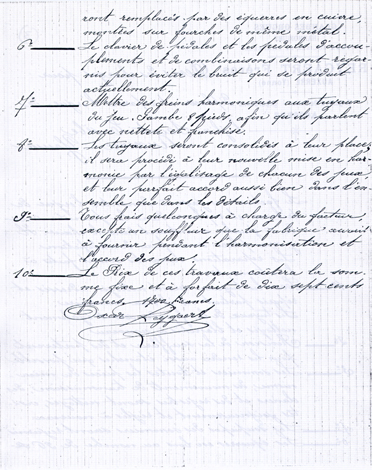 ront remplacés par des équerres en cuivre,
montées sur fourches de même métal.
6º Le clavier de pédales et les pédales d'accou-
plements et de combinaisons seront regar-
nis pour éviter le bruit qui se produit
actuellement.
7º Mettre des freins harmoniques aux tuyaux
du jeu. Gambe 8 pieds, afin qu'ils parlent
avec netteté et franchise.
8º Les tuyaux seront consolidés à leur place,
il sera procédé à leur nouvelle mise en har-
monie par l'égalisage de chacun des jeux,
et leur parfait accord aussi bien dans l'en-
semble que dans les détails.
9º Tous frais quelconques à charge du facteur,
excepté un souffleur que la fabrique aurait
à fournir pendant l'harmonisation et
l'accord des jeux.
10º Le Prix de ces travaux coûtera la som-
me fixe et à forfait de dix sept cents
francs, 1700 francs.
Oscar